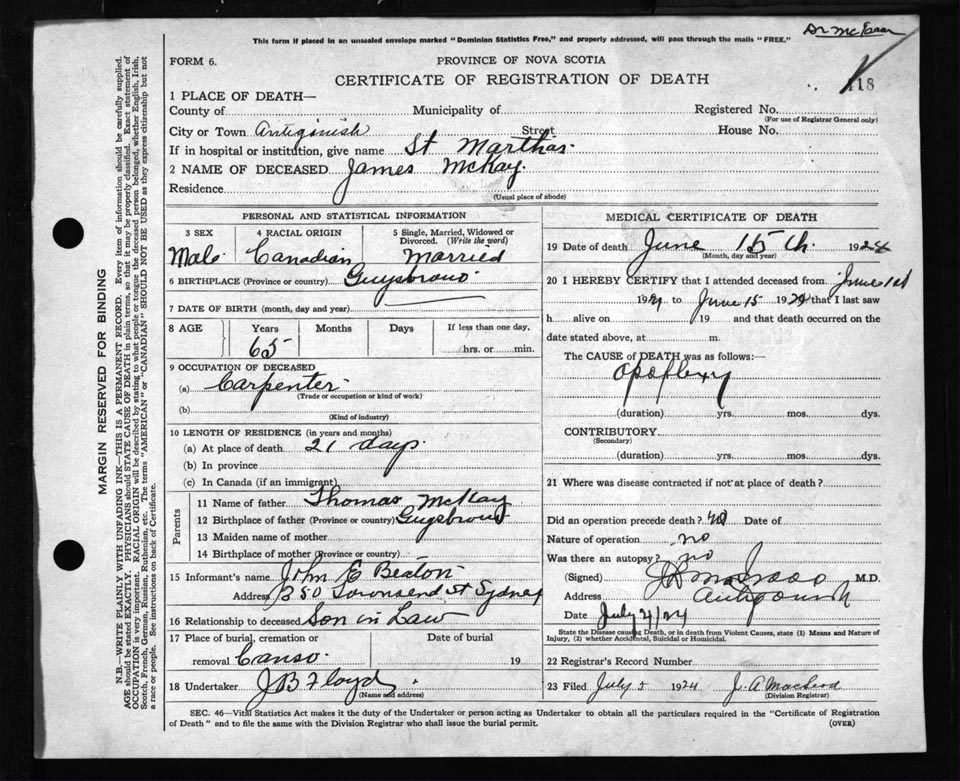 Dr McIsaac
This form if placed in an unsealed envelope marked "Dominion Statistics Free," and properly addressed, will pass through the mails "FREE."
FORM 6.
PROVINCE OF NOVA SCOTIA
CERTIFICATE OF REGISTRATION OF DEATH
118
1 PLACE OF DEATH—
County of Municipality of Registered No.
(For use of Registrar General only)
City or Town Antigonish Street House No.
If in hospital or institution, give name St Marthas.
2 NAME OF DECEASED James McKay.
Residence
(Usual place of abode)
PERSONAL AND STATISTICAL INFORMATION
3 SEX 4 RACIAL ORIGIN 5 Single, Married, Widowed or Divorced. (Write the word)
Male Canadian Married
6 BIRTHPLACE (Province or country) Guysbrouo
7 DATE OF BIRTH (month, day and year)
8 AGE Years Months Days If less than one day,
65 hrs. or min.
9 OCCUPATION OF DECEASED
(a) Carpenter
(Trade or occupation or kind of work)
(b)
(Kind of industry)
10 LENGTH OF RESIDENCE (in years and months)
(a) At place of death 21 days.
(b) In province
(c) In Canada (if an immigrant)
Parents
11 Name of father Thomas McKay
12 Birthplace of father (Province or country) Guysbrouo
13 Maiden name of mother
14 Birthplace of mother (Province or country)
15 Informant's name John E Beaton
Address 250 Townsend St Sydney
16 Relationship to deceased Son in Law
17 Place of burial, cremation or removal Canso. Date of burial 19
18 Undertaker J B Floyd
(Name and address)
MEDICAL CERTIFICATE OF DEATH
19 Date of death June 15th. 1924
(Month, day and year)
20 I HEREBY CERTIFY that I attended deceased from June 1st
1924 to June 15 1924 that I last saw
h alive on 19 and that death occurred on the
date stated above, at m.
The CAUSE of DEATH was as follows:—
Apoplexy
(duration) yrs. mos. dys.
CONTRIBUTORY
(Secondary)
(duration) yrs. mos. dys.
21 Where was disease contracted if not at place of death?
Did an operation precede death? no Date of
Nature of operation no
Was there an autopsy? no
(Signed) M.D.
Address Antigonish
Date July 4/24
State the Disease causing Death, or in death from Violent Causes, state (1) Means and Nature of
Injury, (2) whether Accidental, Suicidal or Homicidal.
22 Registrar's Record Number
23 Filed July 5 1924 J. A Macleod
(Division Registrar)
SEC. 46—Vital Statistics Act makes it the duty of the Undertaker or person acting as Undertaker to obtain all the particulars required in the "Certificate of Registration
of Death" and to file the same with the Division Registrar who shall issue the burial permit. (OVER)
MARGIN RESERVED FOR BINDING
N.B.—WRITE PLAINLY WITH UNFADING INK—THIS IS A PERMANENT RECORD. Every item of information should be carefully supplied.
AGE should be stated EXACTLY. PHYSICIANS should STATE CAUSE OF DEATH in plain terms, so that it may be properly classified. Exact statement of
OCCUPATION is very important. RACIAL ORIGIN will be described by stating to what people or tongue the deceased person belonged, whether English, Irish,
Scotch, French, German, Russian, Ruthenian, etc. The terms "AMERICAN" or "CANADIAN" SHOULD NOT BE USED as they express citizenship but not
a race or people. See instructions on back of Certificate.